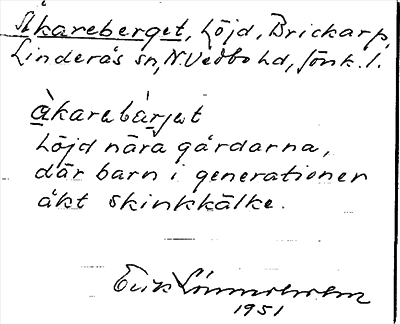 Åkareberget, höjd, Brickarp,
Linderås sn, N. Vedbo hd, Jönk. l.
åkarebärjet
höjd nära gårdarna,
där barn i generationer
åkt skinkkälke.
Erik Lönnerholm
1951